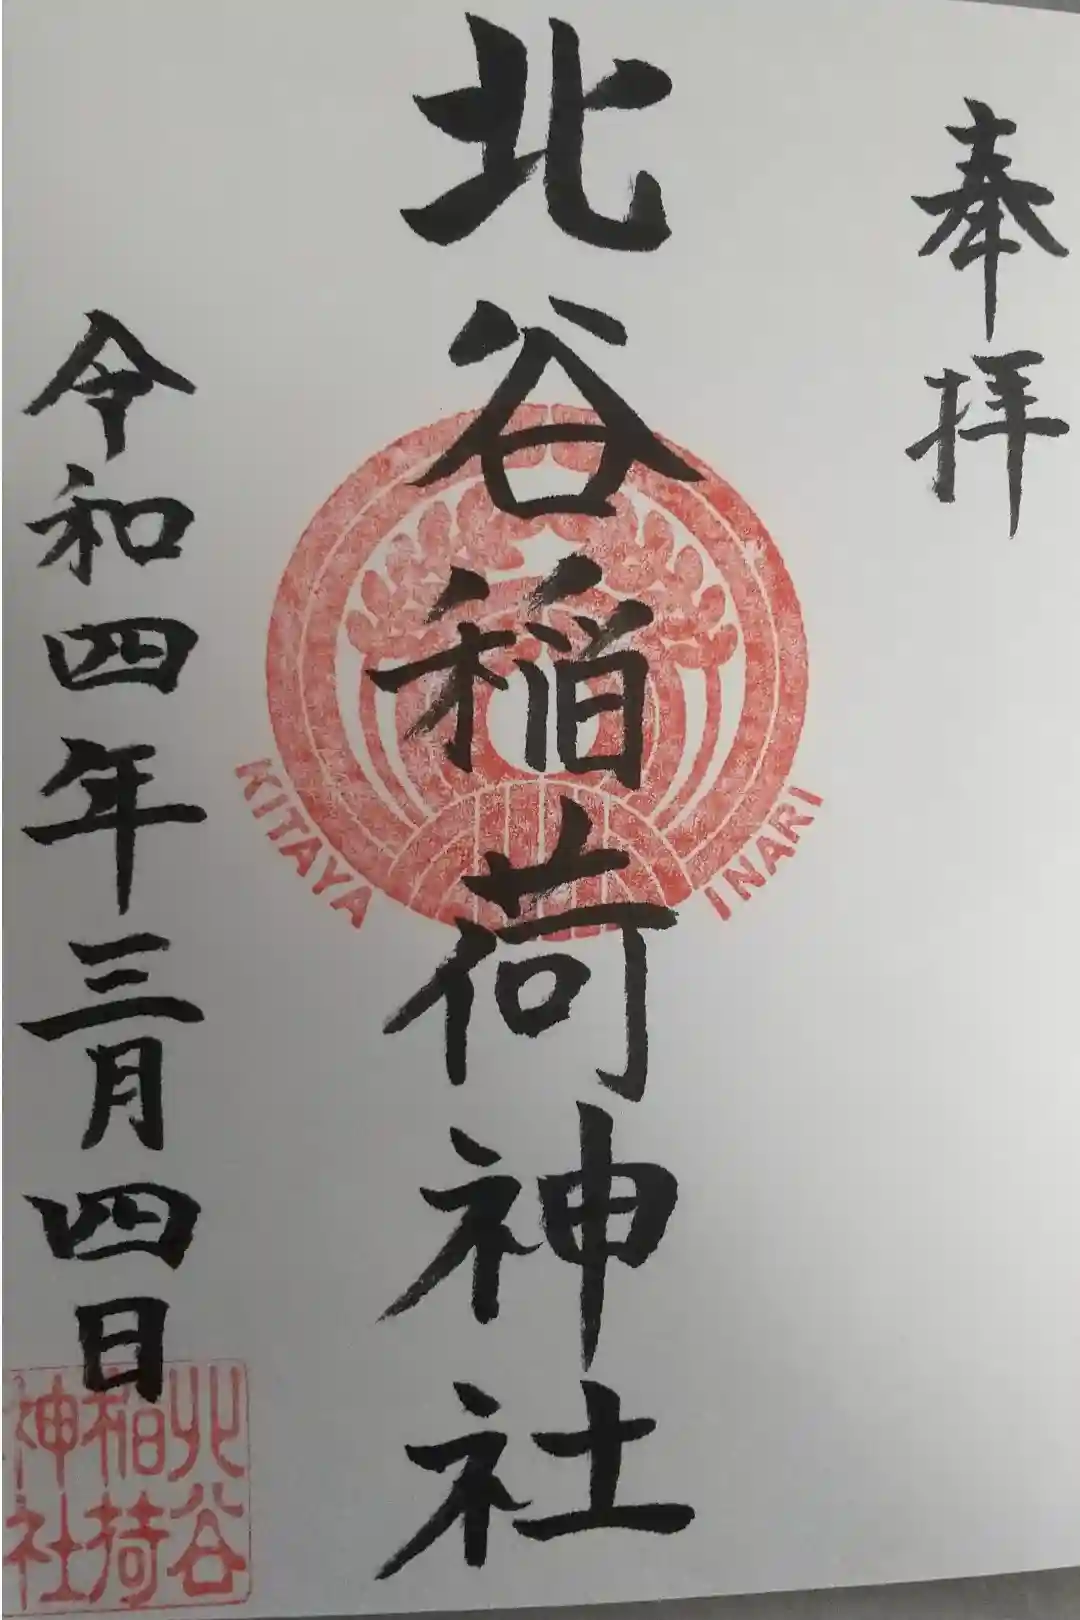 奉拝
北谷稲荷神社
KITAYA INARI
令和四年三月四日
北谷
稲荷
神社